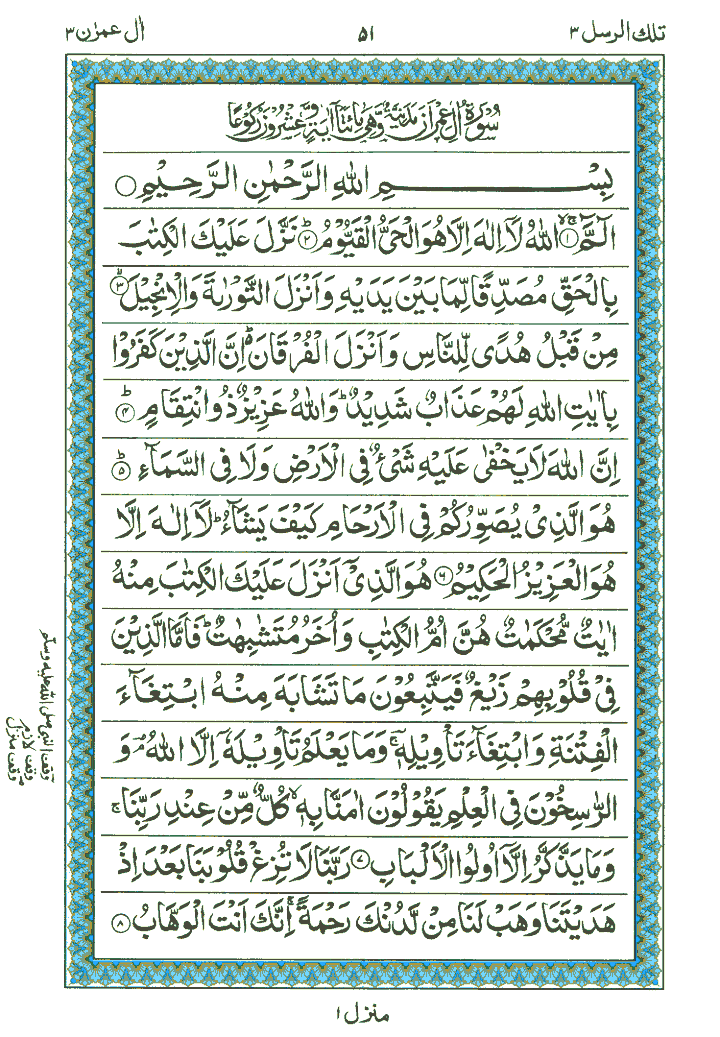 تلك الرسل ٣
٥١
اٰل عمرٰن ٣
سُوْرَةُ اٰلِ عِمْرَانَ مَدَنِيَّةٌ وَّهِيَ مِائَتَا اٰيَةٍ وَّعِشْرُوْنَ رُكُوْعًا
بِسْمِ اللهِ الرَّحْمٰنِ الرَّحِيْمِ ○
الٓمّٓ ۙ﴿١﴾ اللهُ لَاۤ اِلٰهَ اِلَّا هُوَ الْحَيُّ الْقَيُّوْمُ ؕ﴿٢﴾ نَزَّلَ عَلَيْكَ الْكِتٰبَ
بِالْحَقِّ مُصَدِّقًا لِّمَا بَيْنَ يَدَيْهِ وَاَنْزَلَ التَّوْرٰىةَ وَالْاِنْجِيْلَ ؕ﴿٣﴾
مِنْ قَبْلُ هُدًى لِّلنَّاسِ وَاَنْزَلَ الْفُرْقَانَ ؕ اِنَّ الَّذِيْنَ كَفَرُوْا
بِاٰيٰتِ اللهِ لَهُمْ عَذَابٌ شَدِيْدٌ ؕ وَاللهُ عَزِيْزٌ ذُو انْتِقَامٍ ؕ﴿٤﴾
اِنَّ اللهَ لَا يَخْفٰى عَلَيْهِ شَيْءٌ فِى الْاَرْضِ وَلَا فِى السَّمَآءِ ؕ﴿٥﴾
هُوَ الَّذِيْ يُصَوِّرُكُمْ فِى الْاَرْحَامِ كَيْفَ يَشَآءُ ؕ لَاۤ اِلٰهَ اِلَّا
هُوَ الْعَزِيْزُ الْحَكِيْمُ ﴿٦﴾ هُوَ الَّذِيْۤ اَنْزَلَ عَلَيْكَ الْكِتٰبَ مِنْهُ
اٰيٰتٌ مُّحْكَمٰتٌ هُنَّ اُمُّ الْكِتٰبِ وَاُخَرُ مُتَشٰبِهٰتٌ ؕ فَاَمَّا الَّذِيْنَ
فِيْ قُلُوْبِهِمْ زَيْغٌ فَيَتَّبِعُوْنَ مَا تَشَابَهَ مِنْهُ ابْتِغَآءَ
الْفِتْنَةِ وَابْتِغَآءَ تَاْوِيْلِهٖ ۚ وَمَا يَعْلَمُ تَاْوِيْلَهٗۤ اِلَّا اللهُ ۘ وَ
الرّٰسِخُوْنَ فِى الْعِلْمِ يَقُوْلُوْنَ اٰمَنَّا بِهٖ ۙ كُلٌّ مِّنْ عِنْدِ رَبِّنَا ۚ
وَمَا يَذَّكَّرُ اِلَّاۤ اُولُوا الْاَلْبَابِ ﴿٧﴾ رَبَّنَا لَا تُزِغْ قُلُوْبَنَا بَعْدَ اِذْ
هَدَيْتَنَا وَهَبْ لَنَا مِنْ لَّدُنْكَ رَحْمَةً ۚ اِنَّكَ اَنْتَ الْوَهَّابُ ﴿٨﴾
وقف النبى صلى الله عليه وسلم
وقف لازم
وقف منزل
منزل ١